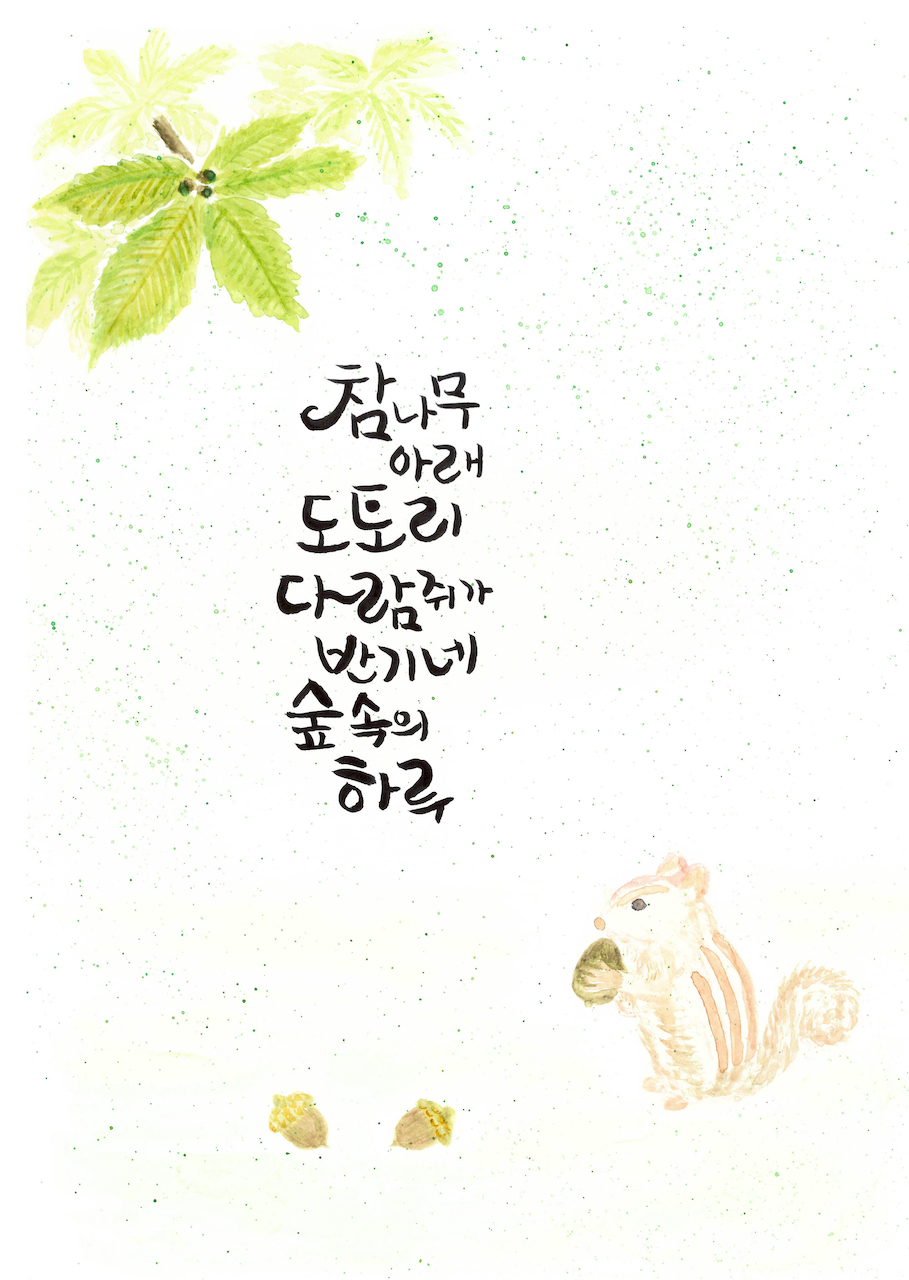 참나무
아래
도토리
다람쥐가
반기네
숲속의
하루